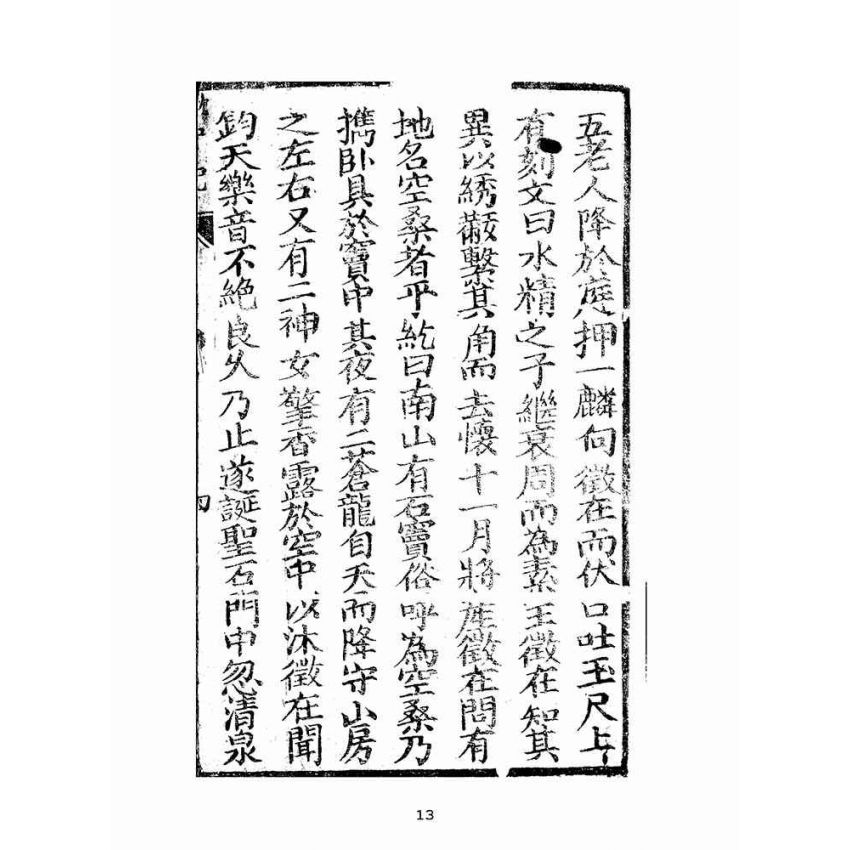 五老人降於庭押一麟向徵在而伏口吐玉尺上
有刻文曰水精之子繼衰周而為素王徵在知其
異以綉紱繫其角而去懷十一月將産徵在問有
地名空桑者乎紇曰南山有石竇俗呼為空桑乃
攜卧具於竇中其夜有二蒼龍自天而降守山房
之左右又有二神女擎香露於空中以沐徵在聞
鈞天樂音不絕良久乃止遂誕聖石門中忽清泉
13